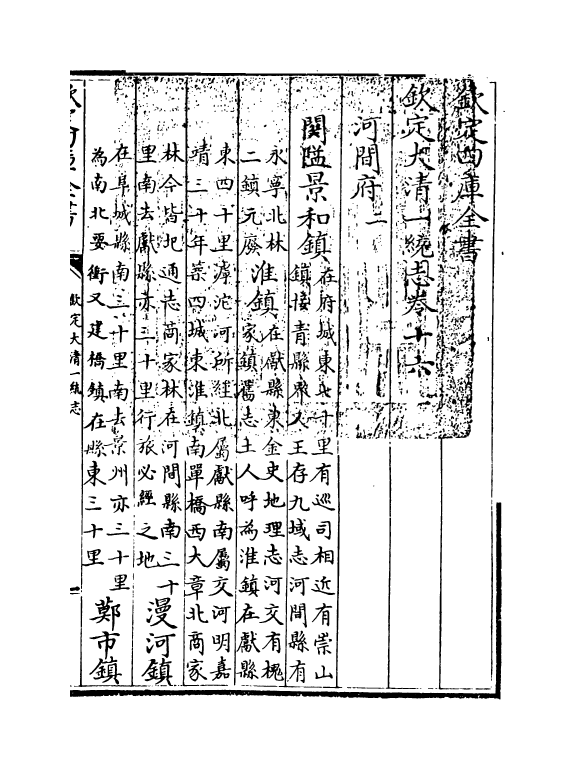 欽定四庫全書
欽定大清一統志卷十六
河間府二
關隘景和鎮在府城東七十里有巡司相近有崇山
鎮接青縣界又王存九域志河間縣有
永寧北林
二鎮元廢淮鎮在獻縣東金史地理志河交有槐
家鎮舊志土人呼為淮鎮在獻縣
東四十里滹沱河所經北屬獻縣南屬交河明嘉
靖三十年築四城東淮鎮南單橋西大章北商家
林今皆圯通志商家林在河間縣南三十
里南去獻縣亦三十里行旅必經之地漫河鎮
在阜城縣南三十里南去景州亦三十里
為南北要衝又建橋鎮在縣東三十里鄭市鎮
欽定大清一統志